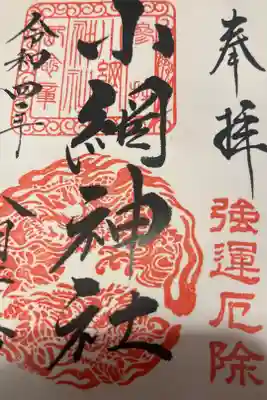 奉拝
強運厄除
小網神社
令和四年
八月